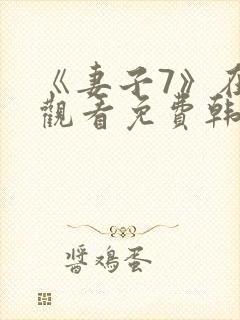 《妻子7》在
觀看免費韩
醬鸡蛋